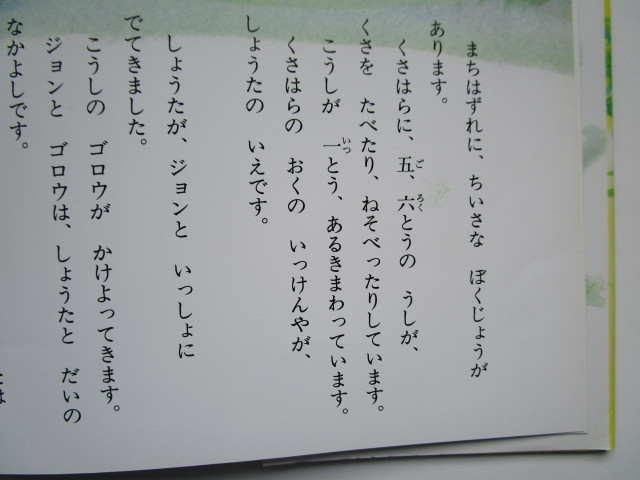 まちはずれに、ちいさな ぼくじょうが
あります。
くさはらに、五、六とうの うしが、
くさを たべたり、ねそべったりしています。
こうしが 一とう、あるきまわっています。
くさはらの おくの いっけんやが、
しょうたの いえです。
しょうたが、ジョンと いっしょに
でてきました。
こうしの ゴロウが かけよってきます。
ジョンと ゴロウは、しょうたと だいの
なかよしです。